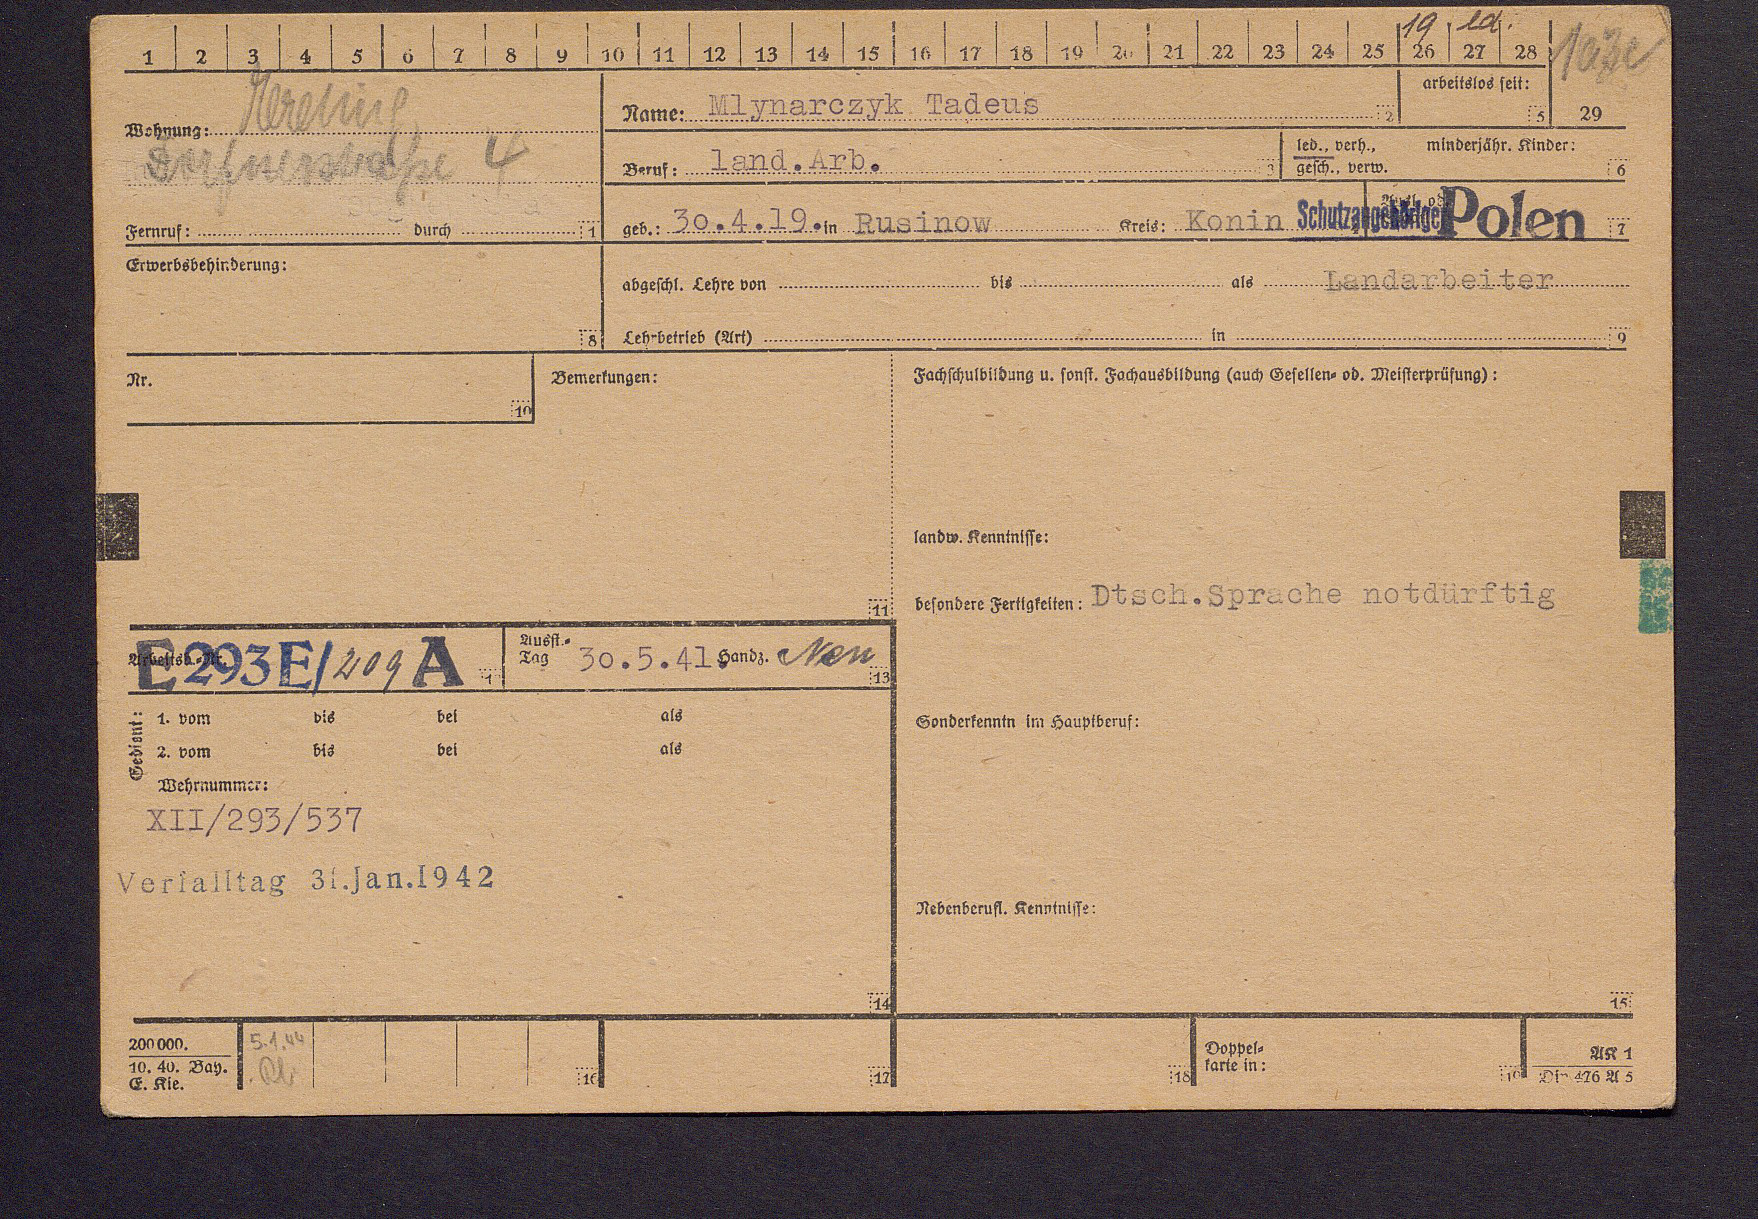 19 led.
1 2 3 4 5 6 7 8 9 10 11 12 13 14 15 16 17 18 19 20 21 22 23 24 25 26 27 28
Wohnung:
4
Fernruf: durch 1
Name: Mlynarczyk Tadeus 2
arbeitslos seit: 5
29
Beruf: land.Arb. 3
led., verh., gesch., verw.
minderjähr. Kinder: 6
geb.: 30.4.19. in Rusinow Kreis: Konin Schutzangehöriger Polen 7
Erwerbsbehinderung: 8
abgeschl. Lehre von bis als Landarbeiter
Lehrbetrieb (Art) in 9
Nr. 10
Bemerkungen: 11
Fachschulbildung u. sonst. Fachausbildung (auch Gesellen- od. Meisterprüfung):
landw. Kenntnisse:
besondere Fertigkeiten: Dtsch.Sprache notdürftig
Arbeitsb.-Nr. E 293 E/209 A
Ausst.-Tag 30.5.41. Handz. 13
Gedient:
1. vom bis bei als
2. vom bis bei als
Wehrnummer:
XII/293/537
Verfalltag 31.Jan.1942
14
Sonderkenntn im Hauptberuf:
Nebenberufl. Kenntnisse:
15
200000.
10. 40. Bay.
E. Kie.
5.1.44
16
17
18
Doppelkarte in: 19
AK 1
Din 476 A 5